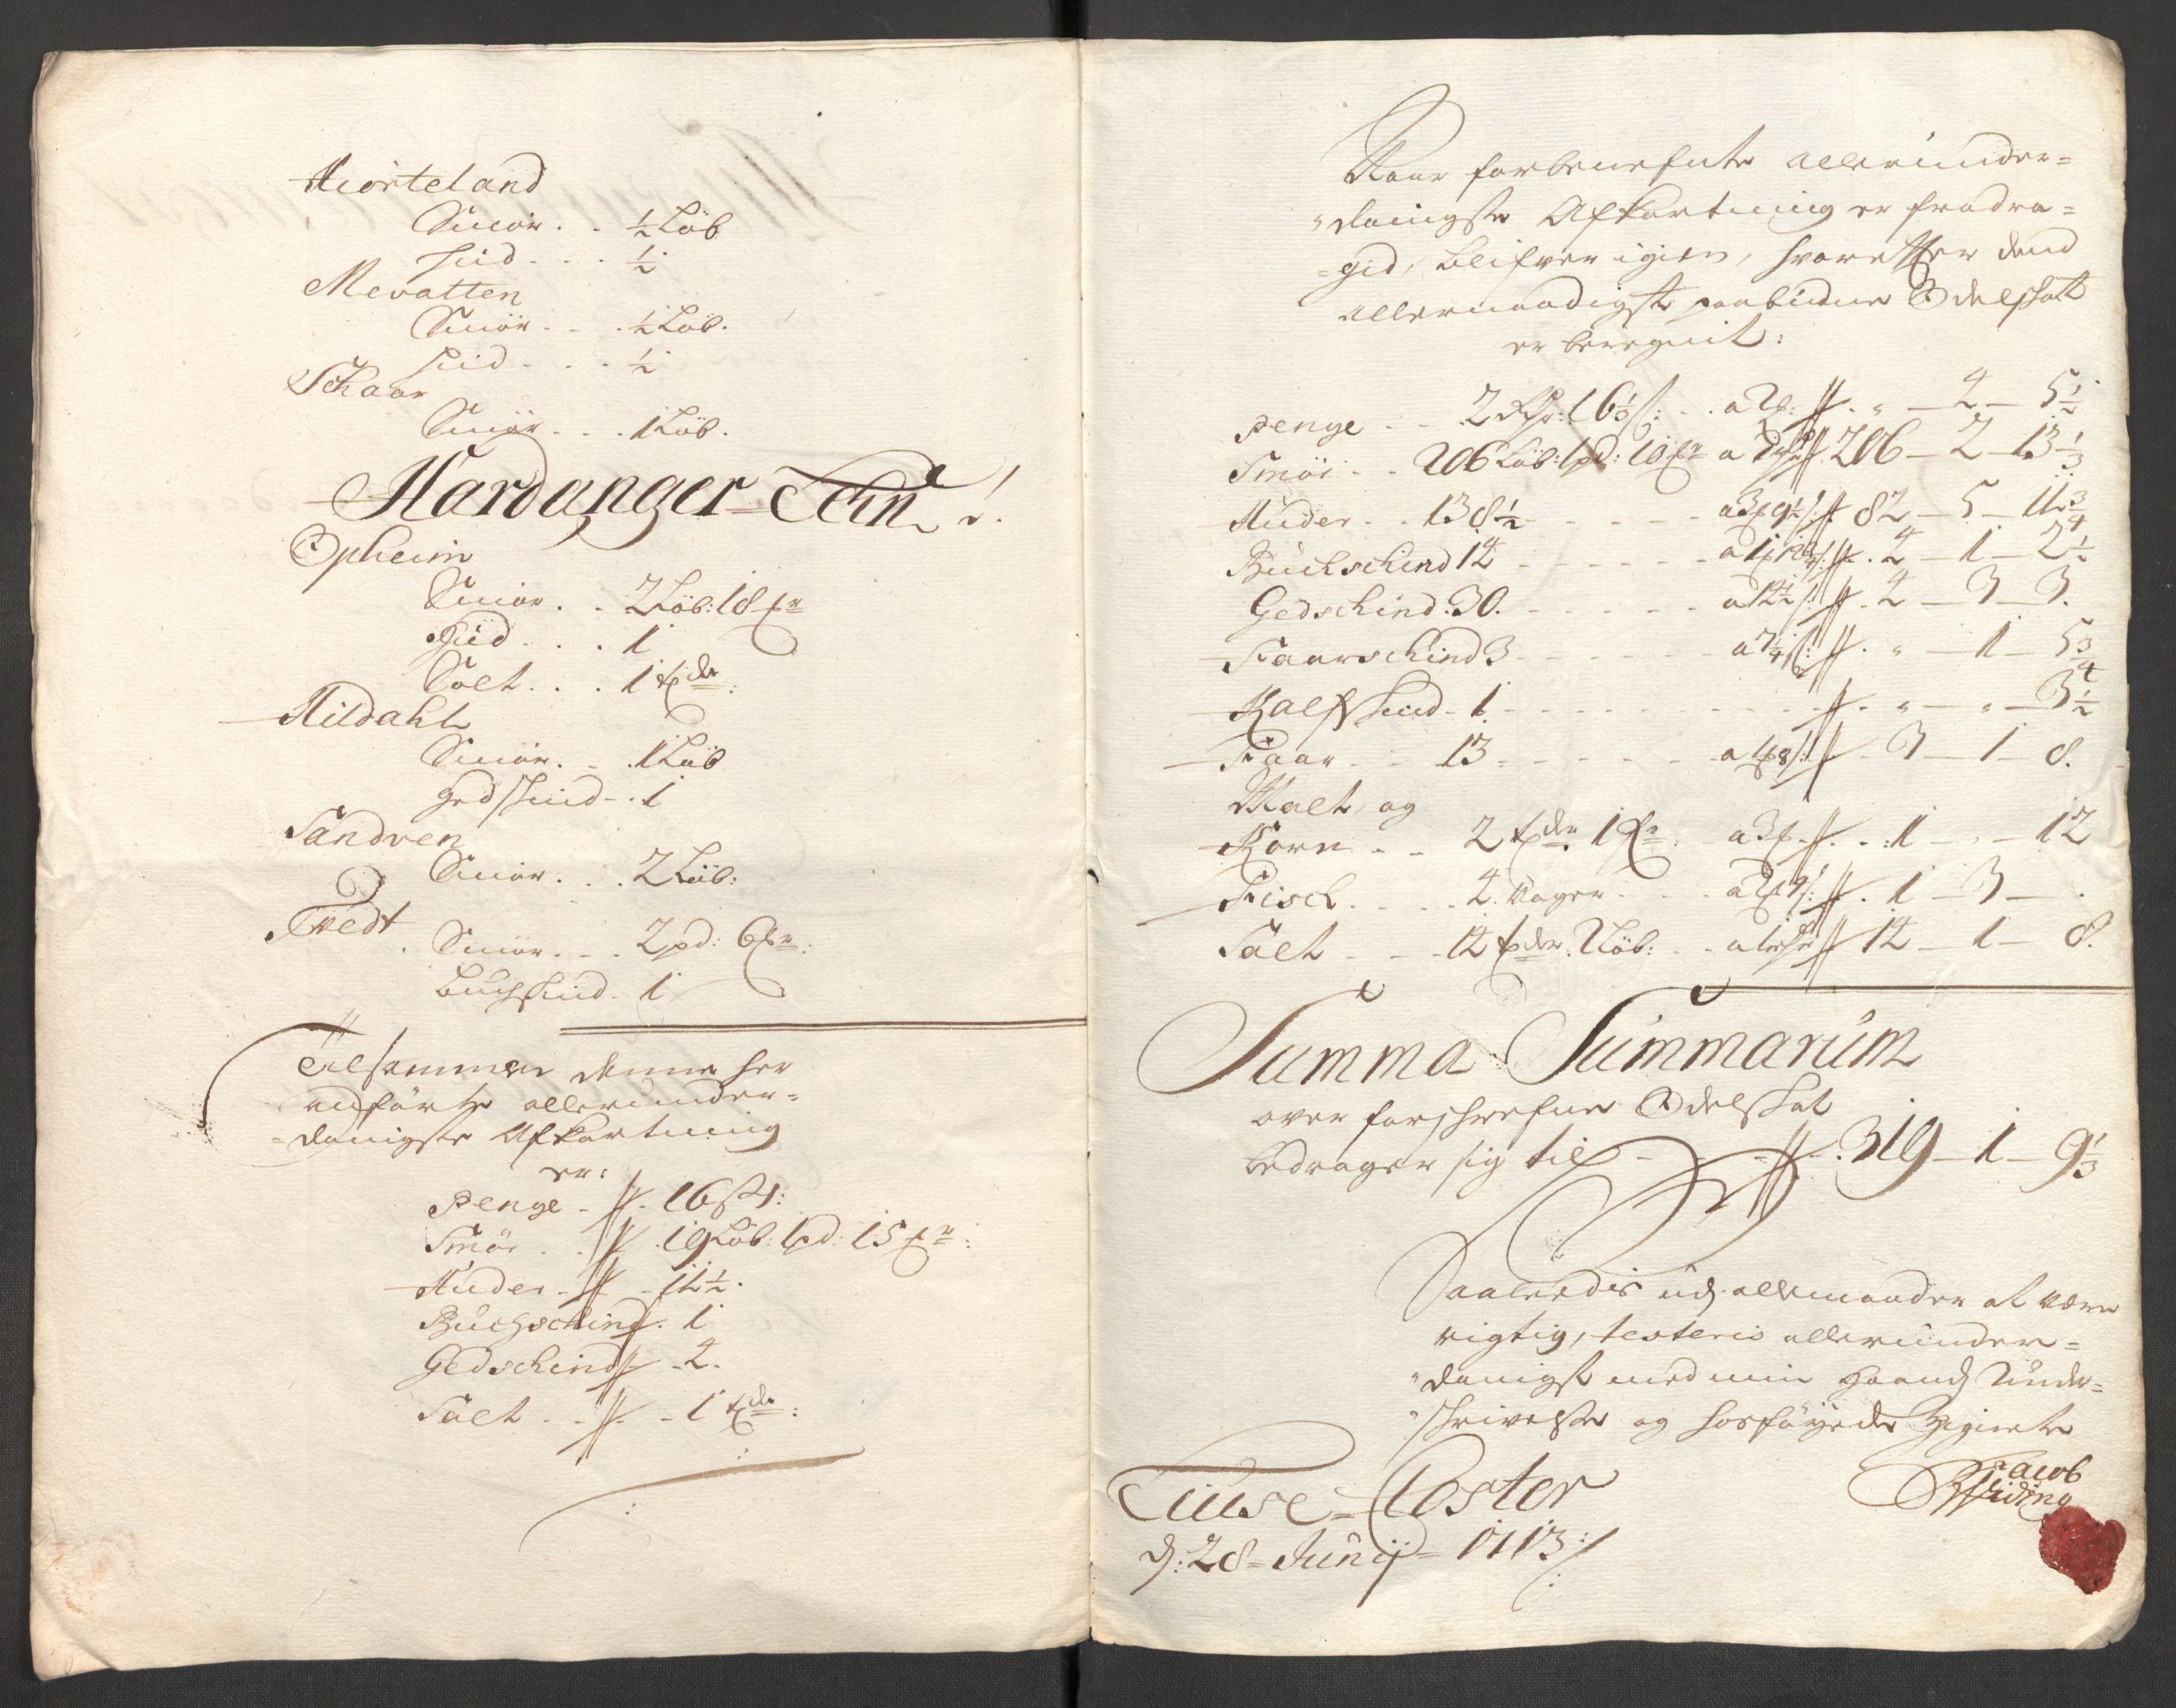 Hiorteland
Smör . . ½ Löb
Hud . . . ½
Mevatten
Smör . . . ½ Löb.
Hud . . . ½
Schaar
Smör . . . 1 Löb.
Hardanger-Lehn
Opheim
Smör . . 2 Löb: 18
Hud . . . 1
Salt . . . 1
Hildahl
Smör . . 1 Löb
Gedschind - . 1
Sandven
Smör . . . 2 Löb:
Tvedt
Smör . . . 2 pd: 6
Buchschind . 1
Tilsammen denne her
anförte allerunder=
=danigste Afkortning
er:
Penge - 16
Smör . . 19 Löb: 1 pd: 15
Huder - 11½.
Buchschind . 1
Gedschind - 2.
Salt . . - 1
Naar forbenefnte allerunder=
=danigste Afkortning er fradra=
=gid, blifver igien, hvorefter dend
allernaadigste paabudne Odelschatt
er beregnit:
Penge . . 2 16⅓ . . a 4 — 5½
Smör . . 206 Löb: 1 pd: 10 a 206 — 2 — 13⅓
Huder . . 138½ a 82 — 5 — 11¾
Buchschind 14 a 4 — 1 — 2½
Gedschind . 30. a 14½ 4 — 3 — 3.
Faarschind 3 a 7¼ „ — 1 — 5¾
Kalfschind - 1 „ — „ — 3½
Faar . . 13 a 3 — 1 — 8.
Malt og
Korn . . 2 1 a 1 — „ — 12
Fisch . . . . 2 Vager . . a 1 — 3 — .
Salt . . . 14 Löb: . . a 14 — 1 — 8.
Summa Summarum
over forschrefne Odelskat
bedrager sig til - 319 — 1 — 9⅓
Saaleedis udj allemaader at være
rigtig, testeris allerunder=
=danigst med min Haands Under=
=schrivelse og hosföyede Zignete
Jacob
Widing
Liuse-Closter
d: 28 = Junij = 1713